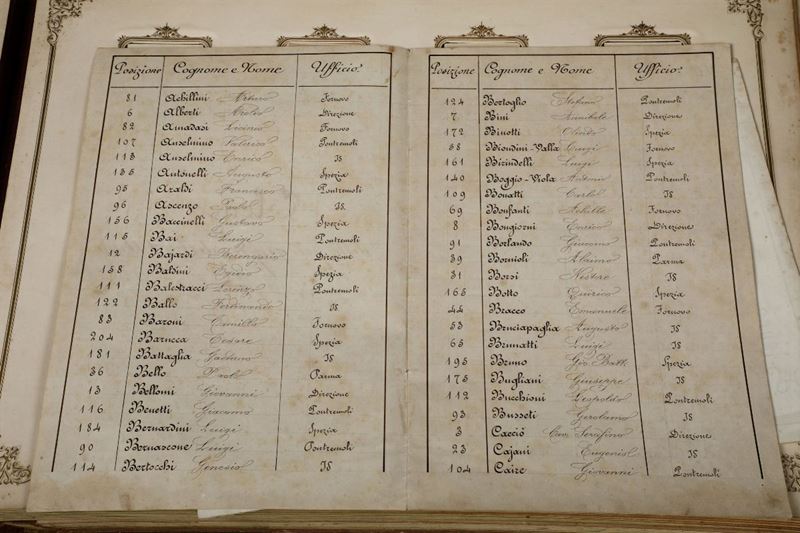 Posizione Cognome e Nome Ufficio
81 Achillini Arturo Fornovo
6 Alberti Direzione
82 Amadasi Licinio Fornovo
107 Anselmino Pontremoli
113 Anselmino Enrico IS
135 Antonelli Augusto Spezia
95 Araldi Francesco Pontremoli
96 Ascenzo Paolo IS
156 Baccinelli Gustavo Spezia
115 Bai Luigi Pontremoli
12 Bajardi Berengario Direzione
158 Baldini Egisto Spezia
111 Balestracci Lorenzo Pontremoli
122 Ballo Ferdinando IS
83 Baroni Camillo Fornovo
204 Barucca Cesare Spezia
181 Battaglia Gaetano IS
36 Bello Paolo Parma
13 Bellomi Giovanni Direzione
116 Benetti Giacomo Pontremoli
184 Bernardini Luigi Spezia
90 Bernascone Luigi Pontremoli
114 Bertocchi Genesio IS
Posizione Cognome e Nome Ufficio
124 Bertoglio Stefano Pontremoli
7 Bini Annibale Direzione
172 Binotti Olinto Spezia
58 Biondini-Valla Luigi Fornovo
161 Birindelli Luigi Spezia
140 Boggio-Viola Antonio Pontremoli
109 Bonatti Carlo IS
69 Bonfanti Achille Fornovo
8 Bongiorni Enrico Direzione
91 Borlando Giacomo Pontremoli
39 Bornioli Albino Parma
31 Borsi Nestore IS
165 Botto Enrico Spezia
44 Bracco Emanuele Fornovo
53 Bruciapaglia Augusto IS
65 Brunatti Luigi IS
195 Bruno Gio. Batt. Spezia
175 Bugliani Giuseppe IS
112 Bucchioni Leopoldo Pontremoli
93 Busseti Gerolamo IS
3 Cacciò Cav. Serafino Direzione
23 Cajani Eugenio IS
104 Caire Giovanni Pontremoli